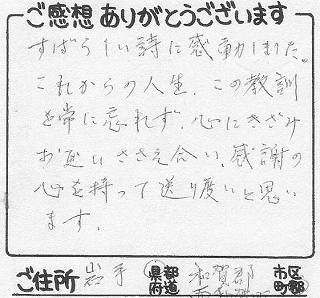 ご感想 ありがとうございます
すばらしい詩に感動しました。
これからの人生、この教訓
を常に忘れず、心にきざみ
お互いささえ合い、感謝の
心を持って送り度いと思い
ます。
ご住所 岩手 都道府県 和賀郡 市区町郡